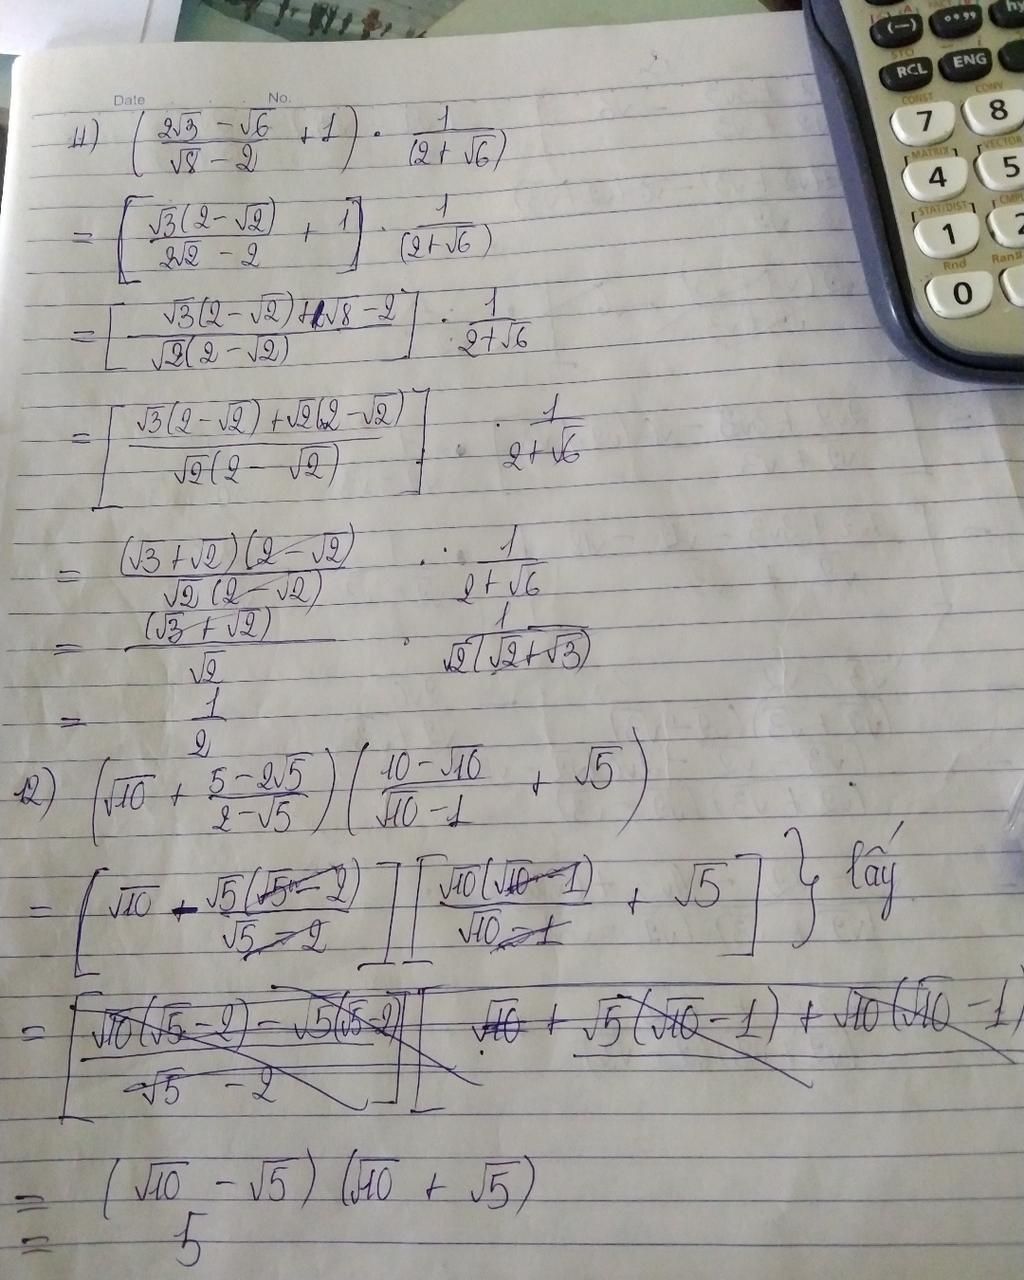 Date No.
11) ( (2√3 - √6)/(√8 - 2) + 1 ) · 1/(2 + √6)
= [ √3(2 - √2)/(2√2 - 2) + 1 ] · 1/(2 + √6)
= [ (√3(2 - √2) + √8 - 2)/(√2(2 - √2)) ] · 1/(2 + √6)
= [ (√3(2 - √2) + √2(2 - √2))/(√2(2 - √2)) ] · 1/(2 + √6)
= (√3 + √2)(2 - √2)/(√2(2 - √2)) · 1/(2 + √6)
= (√3 + √2)/√2 · 1/(√2(√2 + √3))
= 1/2
12) ( √10 + (5 - 2√5)/(2 - √5) ) ( (10 - √10)/(√10 - 1) + √5 )
= [ √10 - √5(√5 - 2)/(√5 - 2) ] [ √10(√10 - 1)/(√10 - 1) + √5 ] } lấy
= [ (√10(√5 - 2) - √5(√5 - 2))/(√5 - 2) ] [ √10 + √5(√10 - 1) + √10(√10 - 1)
= (√10 - √5) (√10 + √5)
= 5
(-) °'"
STO
RCL ENG
CONST CONV
7 8
MATRIX VECTOR
4 5
STAT/DIST
1 2
Rnd Ran#
0